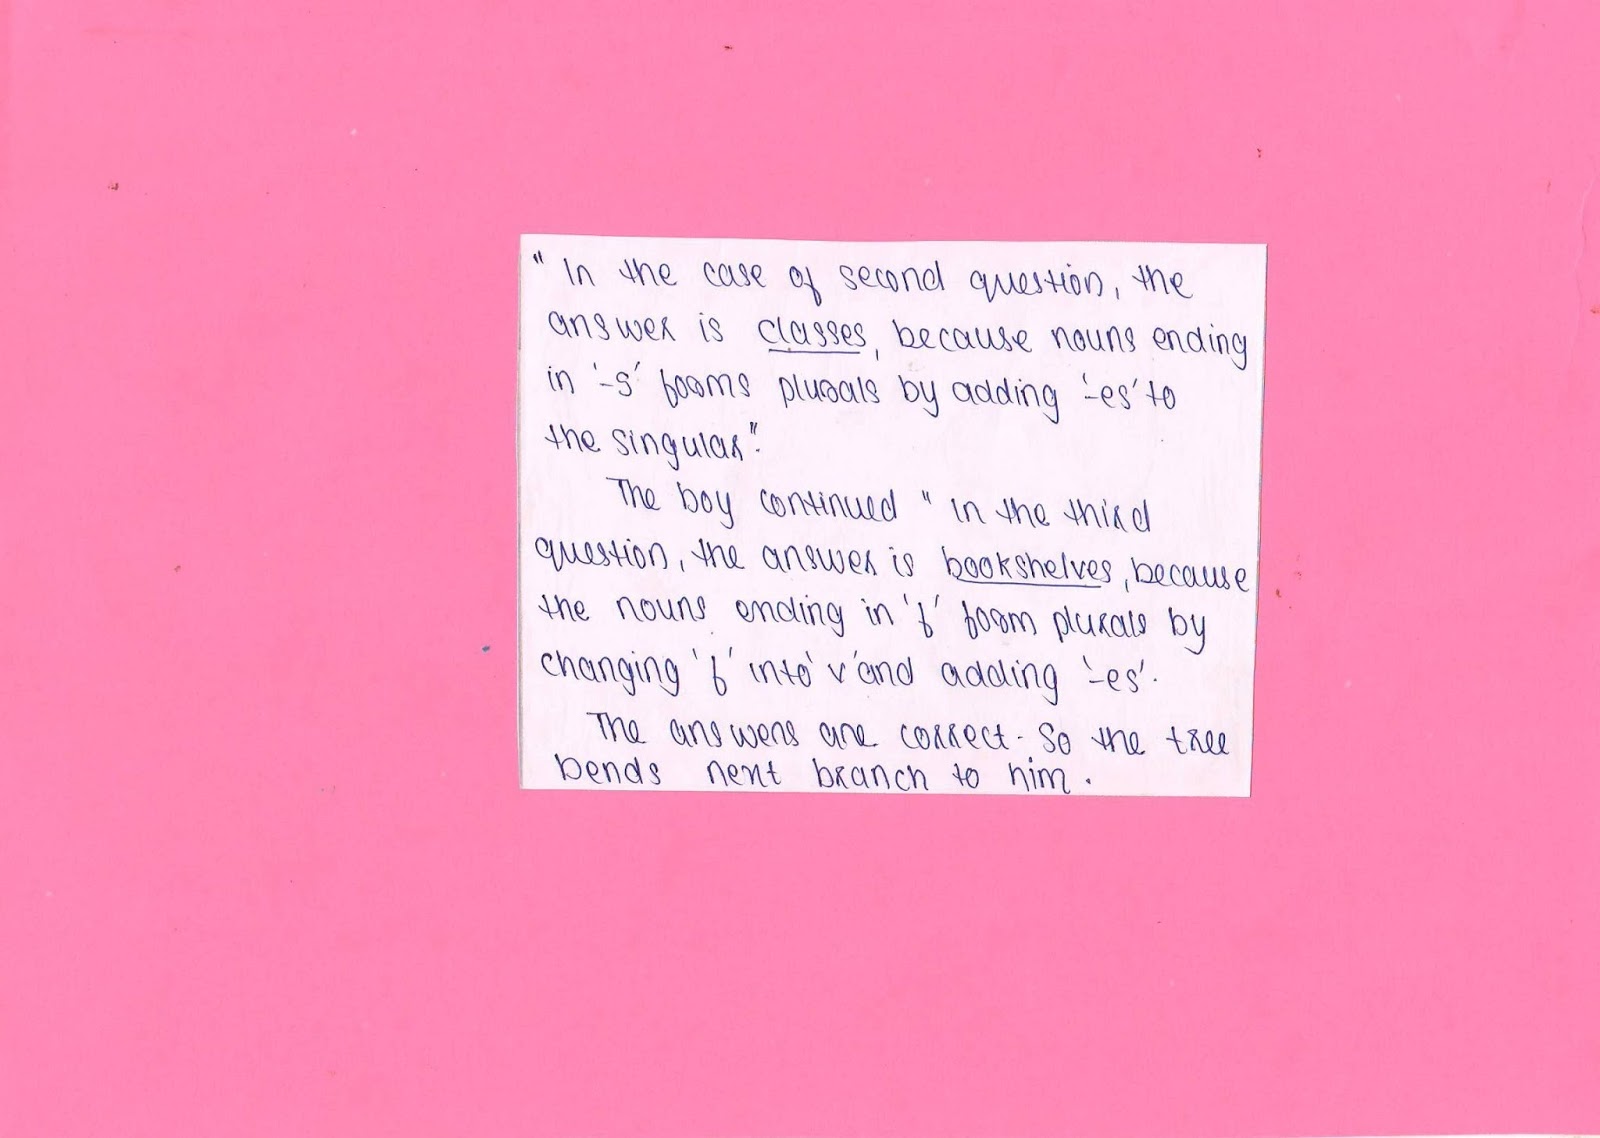 " In the case of second question, the
answer is classes, because nouns ending
in '-s' forms plurals by adding '-es' to
the singular".
The boy continued " In the third
question, the answer is bookshelves, because
the nouns ending in 'f' form plurals by
changing 'f' into 'v' and adding '-es'.
The answers are correct. So the tree
bends next branch to him.